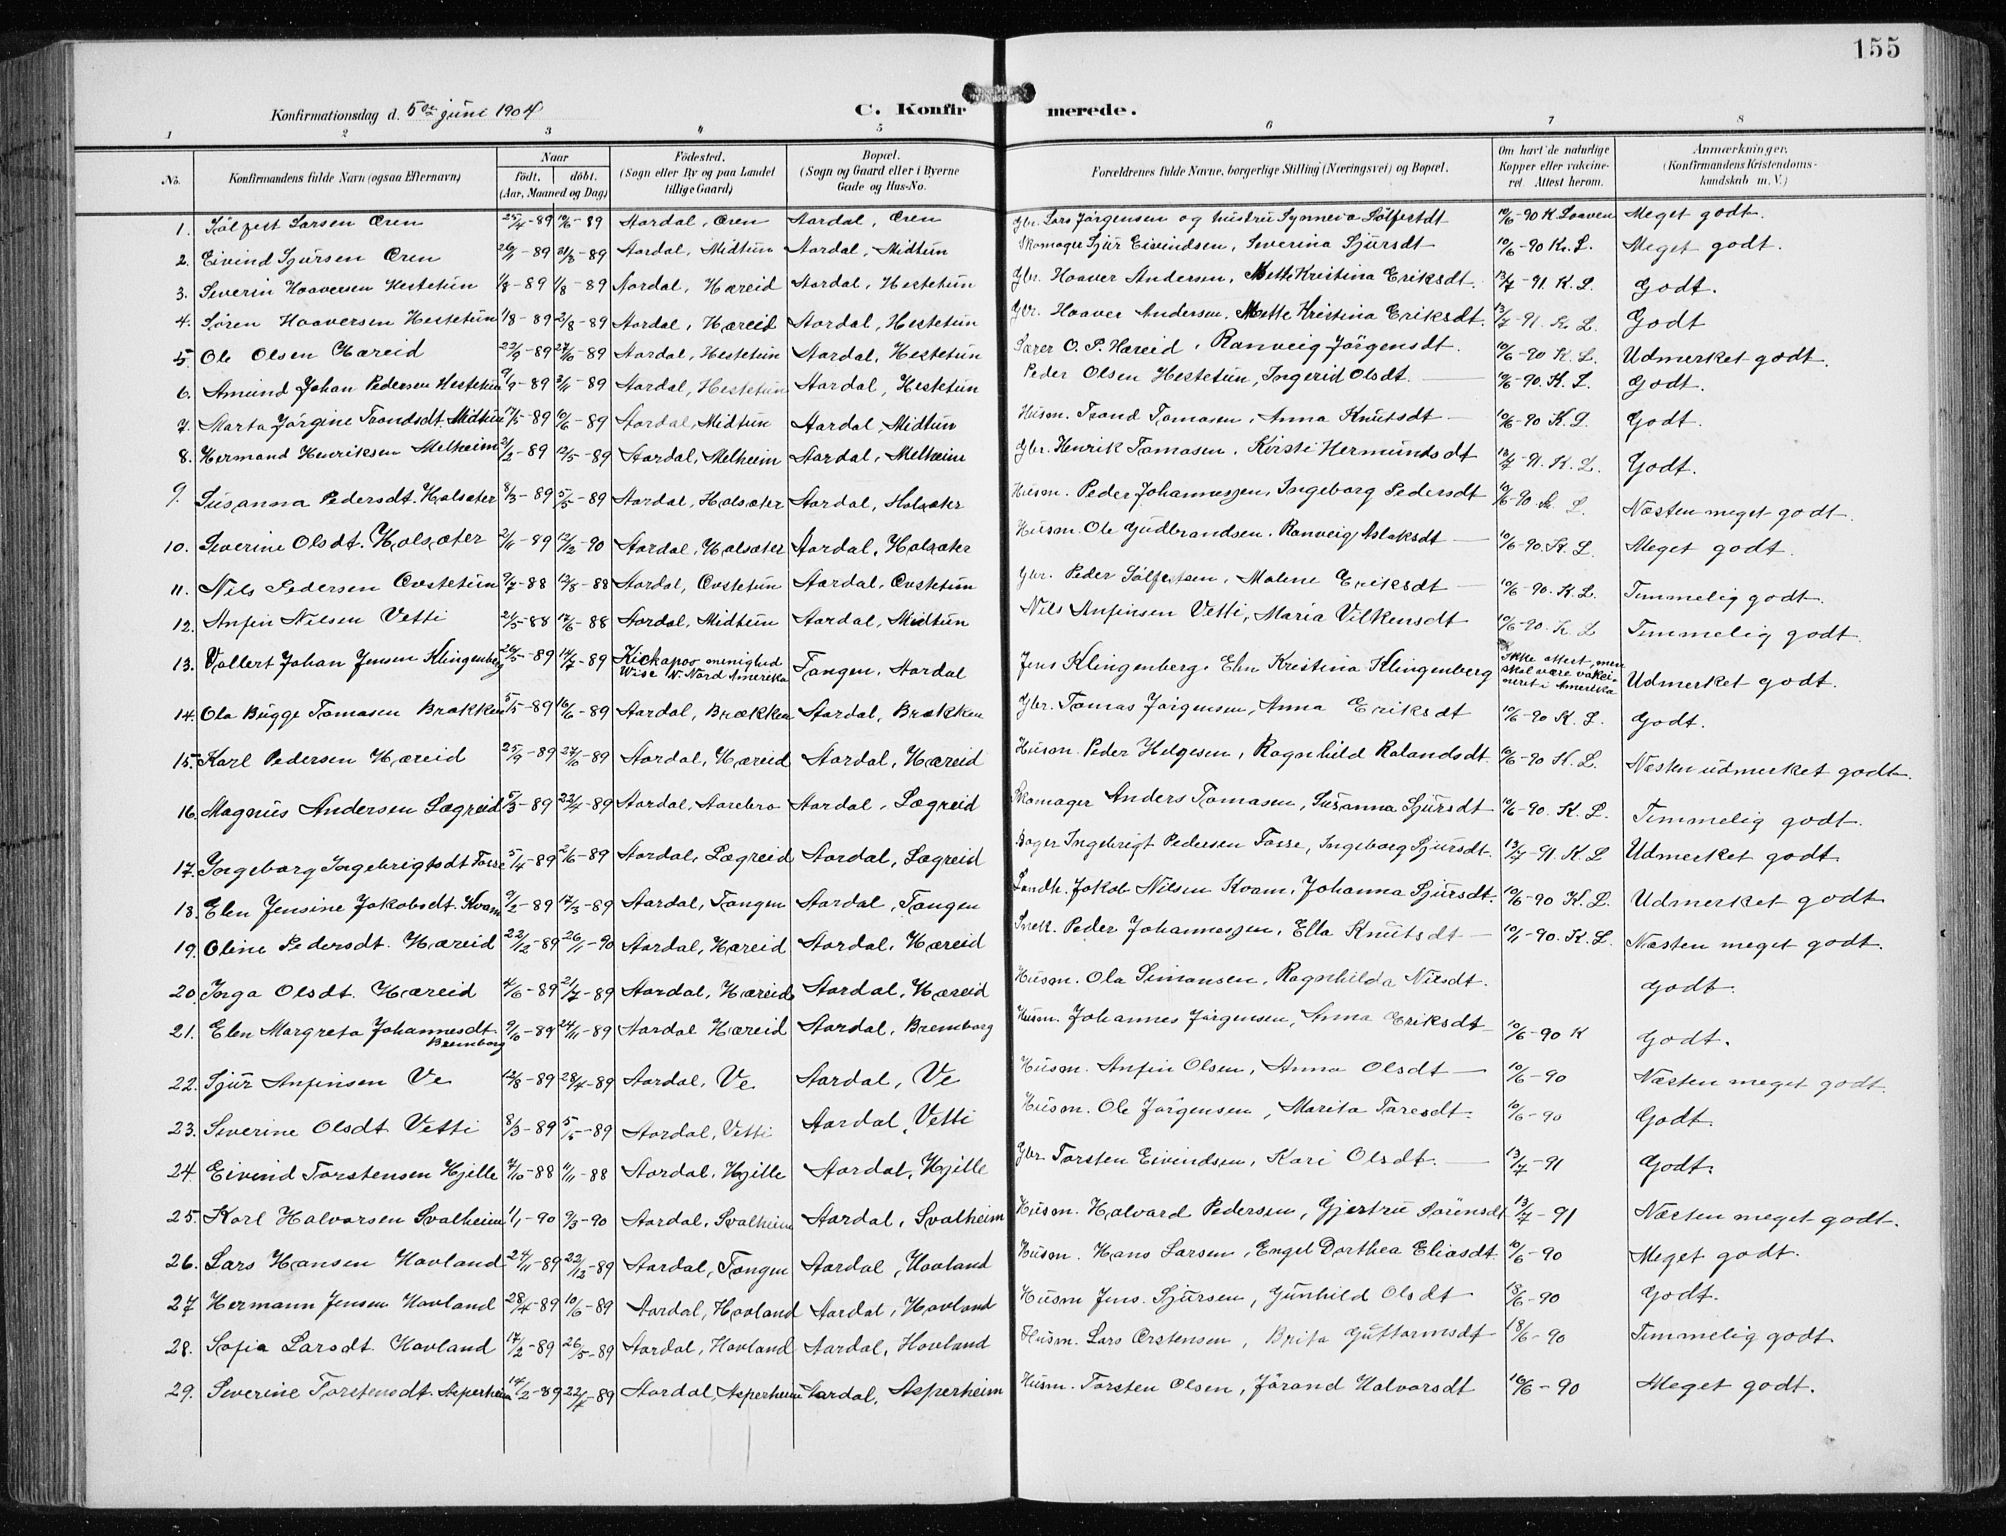 155
Konfirmationsdag d. 5te juni 1904
C. Konfirmerede.
1 2 3 4 5 6 7 8
No. Konfirmandens fulde Navn (ogsaa Efternavn) Naar født. døbt. (Aar, Maaned og Dag) Fødested. (Sogn eller By og paa Landet tillige Gaard) Bopæl. (Sogn og Gaard eller i Byerne Gade og Hus-No. Forældrenes fulde Navne, borgerlige Stilling (Næringsvei) og Bopæl. Om havt de naturlige Kopper eller vaccineret. Attest herom. Anmærkninger, (Konfirmandens Kristendomskundskab m. V.)
1. Sölfest Larsen Øren 25/4-89 10/6-89 Aardal, Øren Aardal, Øren Gbr. Lars Jörgensen og hustru Synneva Sölfestdt 10/6-90 K. Laaven Meget godt.
2. Eivind Sjursen Øren 26/1-89 Aardal, Midtun Aardal, Midtun Skomager Sjur Eivindsen, Severina Sjursdt 10/6-90 K. L. Meget godt.
3. Severin Haaversen Hestetun 1/8-89 Aardal, Hæreid Aardal, Hestetun Gbr. Haaver Andersen, Mette Kristina Eriksdt. 13/7-91. K. L. Godt.
4. Sören Haaversen Hestetun 1/8-89 2/8-89 Aardal, Hæreid Aardal, Hestetun Gbr. Haaver Andersen, Mette Kristina Eriksdt. 13/7-91 K L. Godt
5. Ole Olsen Hæreid 22/9-89 27/10-89 Aardal, Hestetun Aardal, Hestetun Lærer O. P. Hæreid, Ranveig Jörgensdt. 10/6-90 K. L. Udmerket godt.
6. Amund Johan Pedersen Hestetun 9/9-89 2/11-89 Aardal, Hestetun Aardal, Hestetun Peder Olsen Hestetun, Ingerid Olsdt. 10/6-90. K. L. Godt.
7. Marta Jörgine Trondsdt. Midtun 17/5-89 10/6-89 Aardal, Midtun Aardal, Midtun Husm. Trond Tomasen, Anna Knutsdt 10/6-90 K. L. Godt.
8. Hermand Henriksen Melheim 21/2-89 12/5-89 Aardal, Melheim Aardal, Melheim Gbr. Henrik Tomasen, Kirsti Hermundsdt 13/7-91. K. L. Godt.
9. Susanna Pedersdt. Holsæter 8/3-89 5/5-89 Aardal, Holsæter Aardal, Holsæter Husm. Peder Johannessen, Ingeborg Pedersdt 10/6-90 K. L. Næsten meget godt.
10. Severine Olsdt. Holsæter 2/11-89 12/12-90 Aardal, Holsæter Aardal, Holsæter Husm. Ole Gudbrandsen, Ranveig Aslaksdt 10/6-90. K. L. Meget godt.
11. Nils Pedersen Øvstetun 9/7-88 12/8-88 Aardal, Øvstetun Aardal, Øvstetun Gbr. Peder Sölfestsen, Malene Eriksdt 10/6-90. K. L. Temmelig godt.
12. Anfin Nilsen Vetti 21/5-88 17/6-88 Aardal, Midtun Aardal, Midtun Nils Anfinsen Vetti, Maria Vilkensdt 10/6-90. K L Temmelig godt.
13. Vollert Johan Jensen Klingenberg 26/5-89 14/7-89 Kickapoo menighed Wisc. N. Nord Amerika Tangen, Aardal Jens Klingenberg, Elen Kristina Klingenberg Ikke attest, men skal være vakcineret i Amerika Udmerket godt.
14. Ola Bugge Tomasen Brækken 5/5-89 16/6-89 Aardal, Brækken Aardal, Brækken Gbr. Tomas Jörgensen, Anna Eriksdt 10/6-90 K. L. Godt.
15. Karl Pedersen Hæreid 25/9-89 27/10-89 Aardal, Hæreid Aardal, Hæreid Husm. Peder Helgesen, Ragnhild Rolandsdt. 10/6-90 K. L. Næsten udmerket godt.
16. Magnus Andersen Lægreid 5/3-89 22/4-89 Aardal, Aarebro Aardal, Lægreid Skomager Anders Tomasen, Susanna Sjursdt 10/6-90. K. L. Temmelig godt.
17. Ingeborg Ingebrigtsdt Fosse 5/4-89 2/6-89 Aardal, Lægreid Aardal, Lægreid Bager Ingebrigt Pedersen Fosse, Ingeborg Sjursdt. 13/7-91. K. L Udmerket godt
18. Elen Jensine Jakobsdt. Kvam 9/2-89 17/3-89 Aardal, Tangen Aardal, Tangen Landh. Jakob Nilsen Kvam, Johanna Sjursdt. 10/6-90 K. L. Udmerket godt
19. Oline Pedersdt. Hæreid 22/12-89 26/1-90 Aardal, Hæreid Aardal, Hæreid Snek. Peder Johannessen, Ella Knutsdt 10/11-90. K. L. Næsten meget godt.
20. Inga Olsdt. Hæreid 4/6-89 21/7-89 Aardal, Hæreid Aardal, Hæreid Husm. Ola Simonsen, Ragnhilda Nilsdt. Godt.
21. Elen Margreta Johannesdt. Bremborg 9/10-89 24/11-89 Aardal Hæreid Aardal, Bremborg Husm. Johannes Jörgensen, Anna Eriksdt 10/6-90 K Godt.
22. Sjur Anfinsen Ve 12/3-89 28/4-89 Aardal, Ve Aardal, Ve Husm. Anfin Olsen, Anna Olsdt 10/6-90 Næsten meget godt.
23. Severine Olsdt Vetti 8/3-89 5/5-89 Aardal, Vetti Aardal, Vetti Husm. Ole Jörgensen, Marita Taresdt. 10/6-90 Godt.
24. Eivind Torstensen Hjelle 7/10-88 1/11-88 Aardal, Hjelle Aardal, Hjelle Gbr. Torsten Eivindsen, Kari Olsdt. 13/7-91 Godt.
25. Karl Halvorsen Svalheim 1/1-90 9/3-90 Aardal, Svalheim Aardal, Svalheim Husm. Halvard Pedersen, Gjertru Sörensdt 13/7-91 Næsten meget godt.
26. Lars Hansen Hovland 24/11-89 22/12-89 Aardal, Tangen Aardal, Hovland Husm. Hans Larsen, Engel Dorthea Eliasdt. 10/6-90 Meget godt.
27 Hermann Jensen Hovland 28/4-89 10/6-89 Aardal, Hovland Aardal, Hovland Husm Jens Sjursen, Gunhild Olsdt 18/6-90 Godt.
28. Sofia Larsdt. Hovland 17/2-89 26/5-89 Aardal, Hovland Aardal, Hovland Husm. Lars Ørstensen, Brita Guttormsdt 18/6-90 Temmelig godt.
29. Severine Torstensdt. Asperheim 14/2-89 22/4-89 Aardal, Asperheim Aardal, Asperheim Husm. Torsten Olsen, Jörand Halvorsdt 10/6-90 Meget godt.